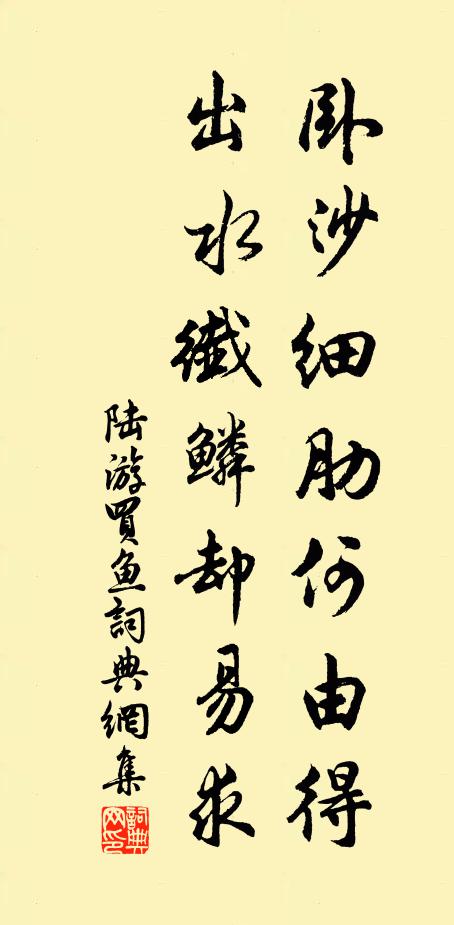 卧沙細肋何由得
出水纖鱗却易求
陆游買鱼詞典網集
詞典網印